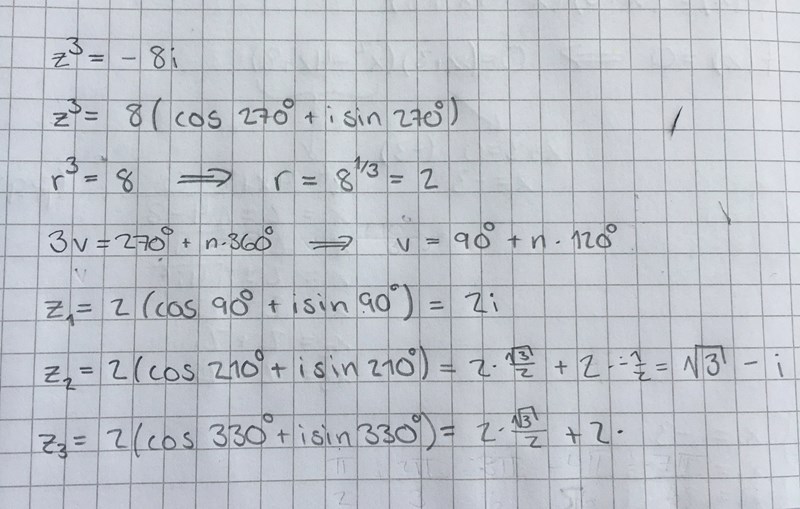 z³ = - 8i
z³ = 8 ( cos 270° + i sin 270° )
r³ = 8 ⟹ r = 8^1/3 = 2
3v = 270° + n·360° ⟹ v = 90° + n · 120°
z₁ = 2 (cos 90° + i sin 90°) = 2i
z₂ = 2 (cos 210° + i sin 210°) = 2 · √3/2 + 2 · -1/2 = √3 - i
z₃ = 2 (cos 330° + i sin 330°) = 2 · √3/2 + 2 ·